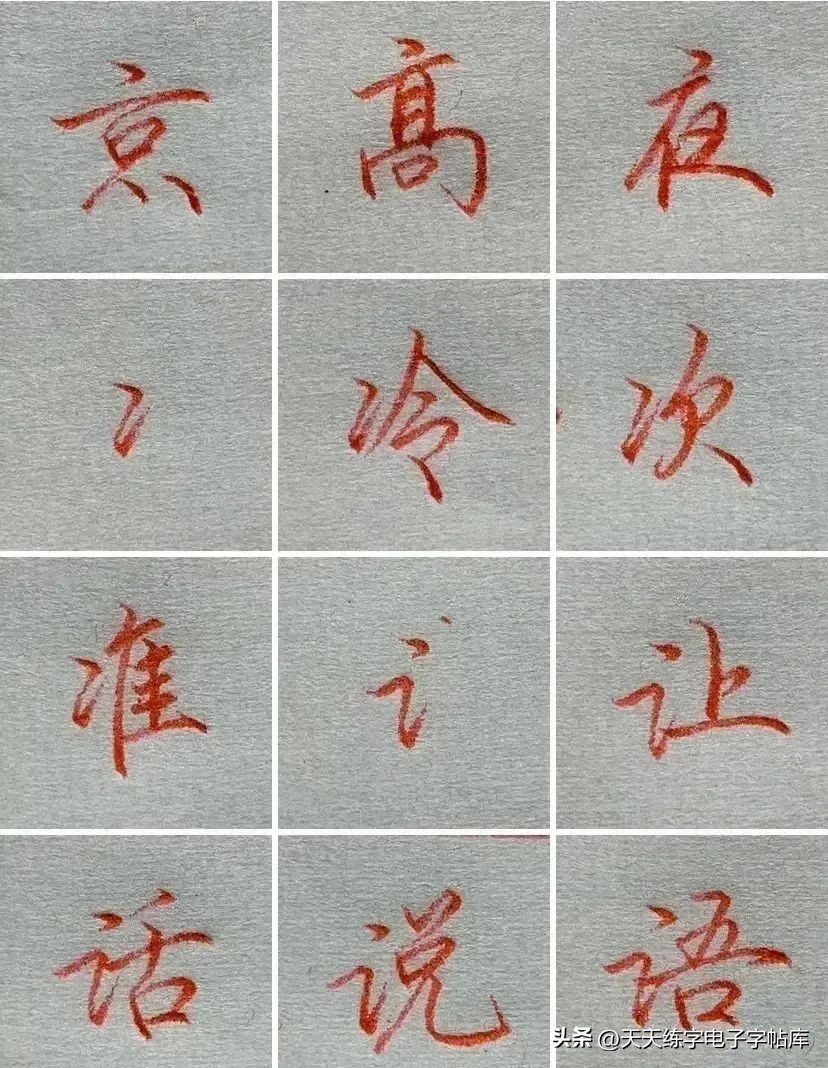 京 高 夜
冫 冷 次
准 讠 让
话 说 语
头条 @天天练字电子字帖库